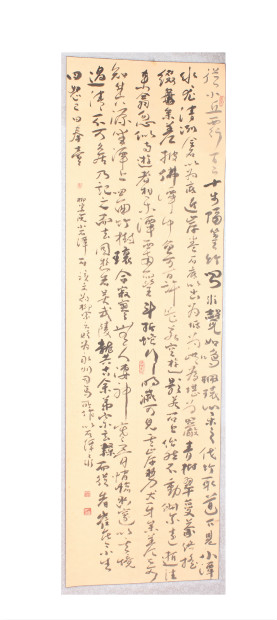 從小丘西行百二十步隔篁竹聞水聲如鳴珮環心樂之伐竹取道下見小潭
水尤清冽全石以為底近岸卷石底以出為坻為嶼為嵁為巖青樹翠蔓蒙絡搖
綴參差披拂潭中魚可百許頭皆若空遊影布石上佁然不動俶爾遠逝往
來翕忽似與遊者相樂潭西南而望斗折蛇行明滅可見其岸勢犬牙差互不可
知其源坐潭上四面竹樹環合寂寥無人淒神寒骨悄愴幽邃以其境
過清不可久居乃記之而去同遊者吳武陵龔古余弟宗玄隸而從者崔氏二小生
曰恕己曰奉壹
柳宗元小石潭記